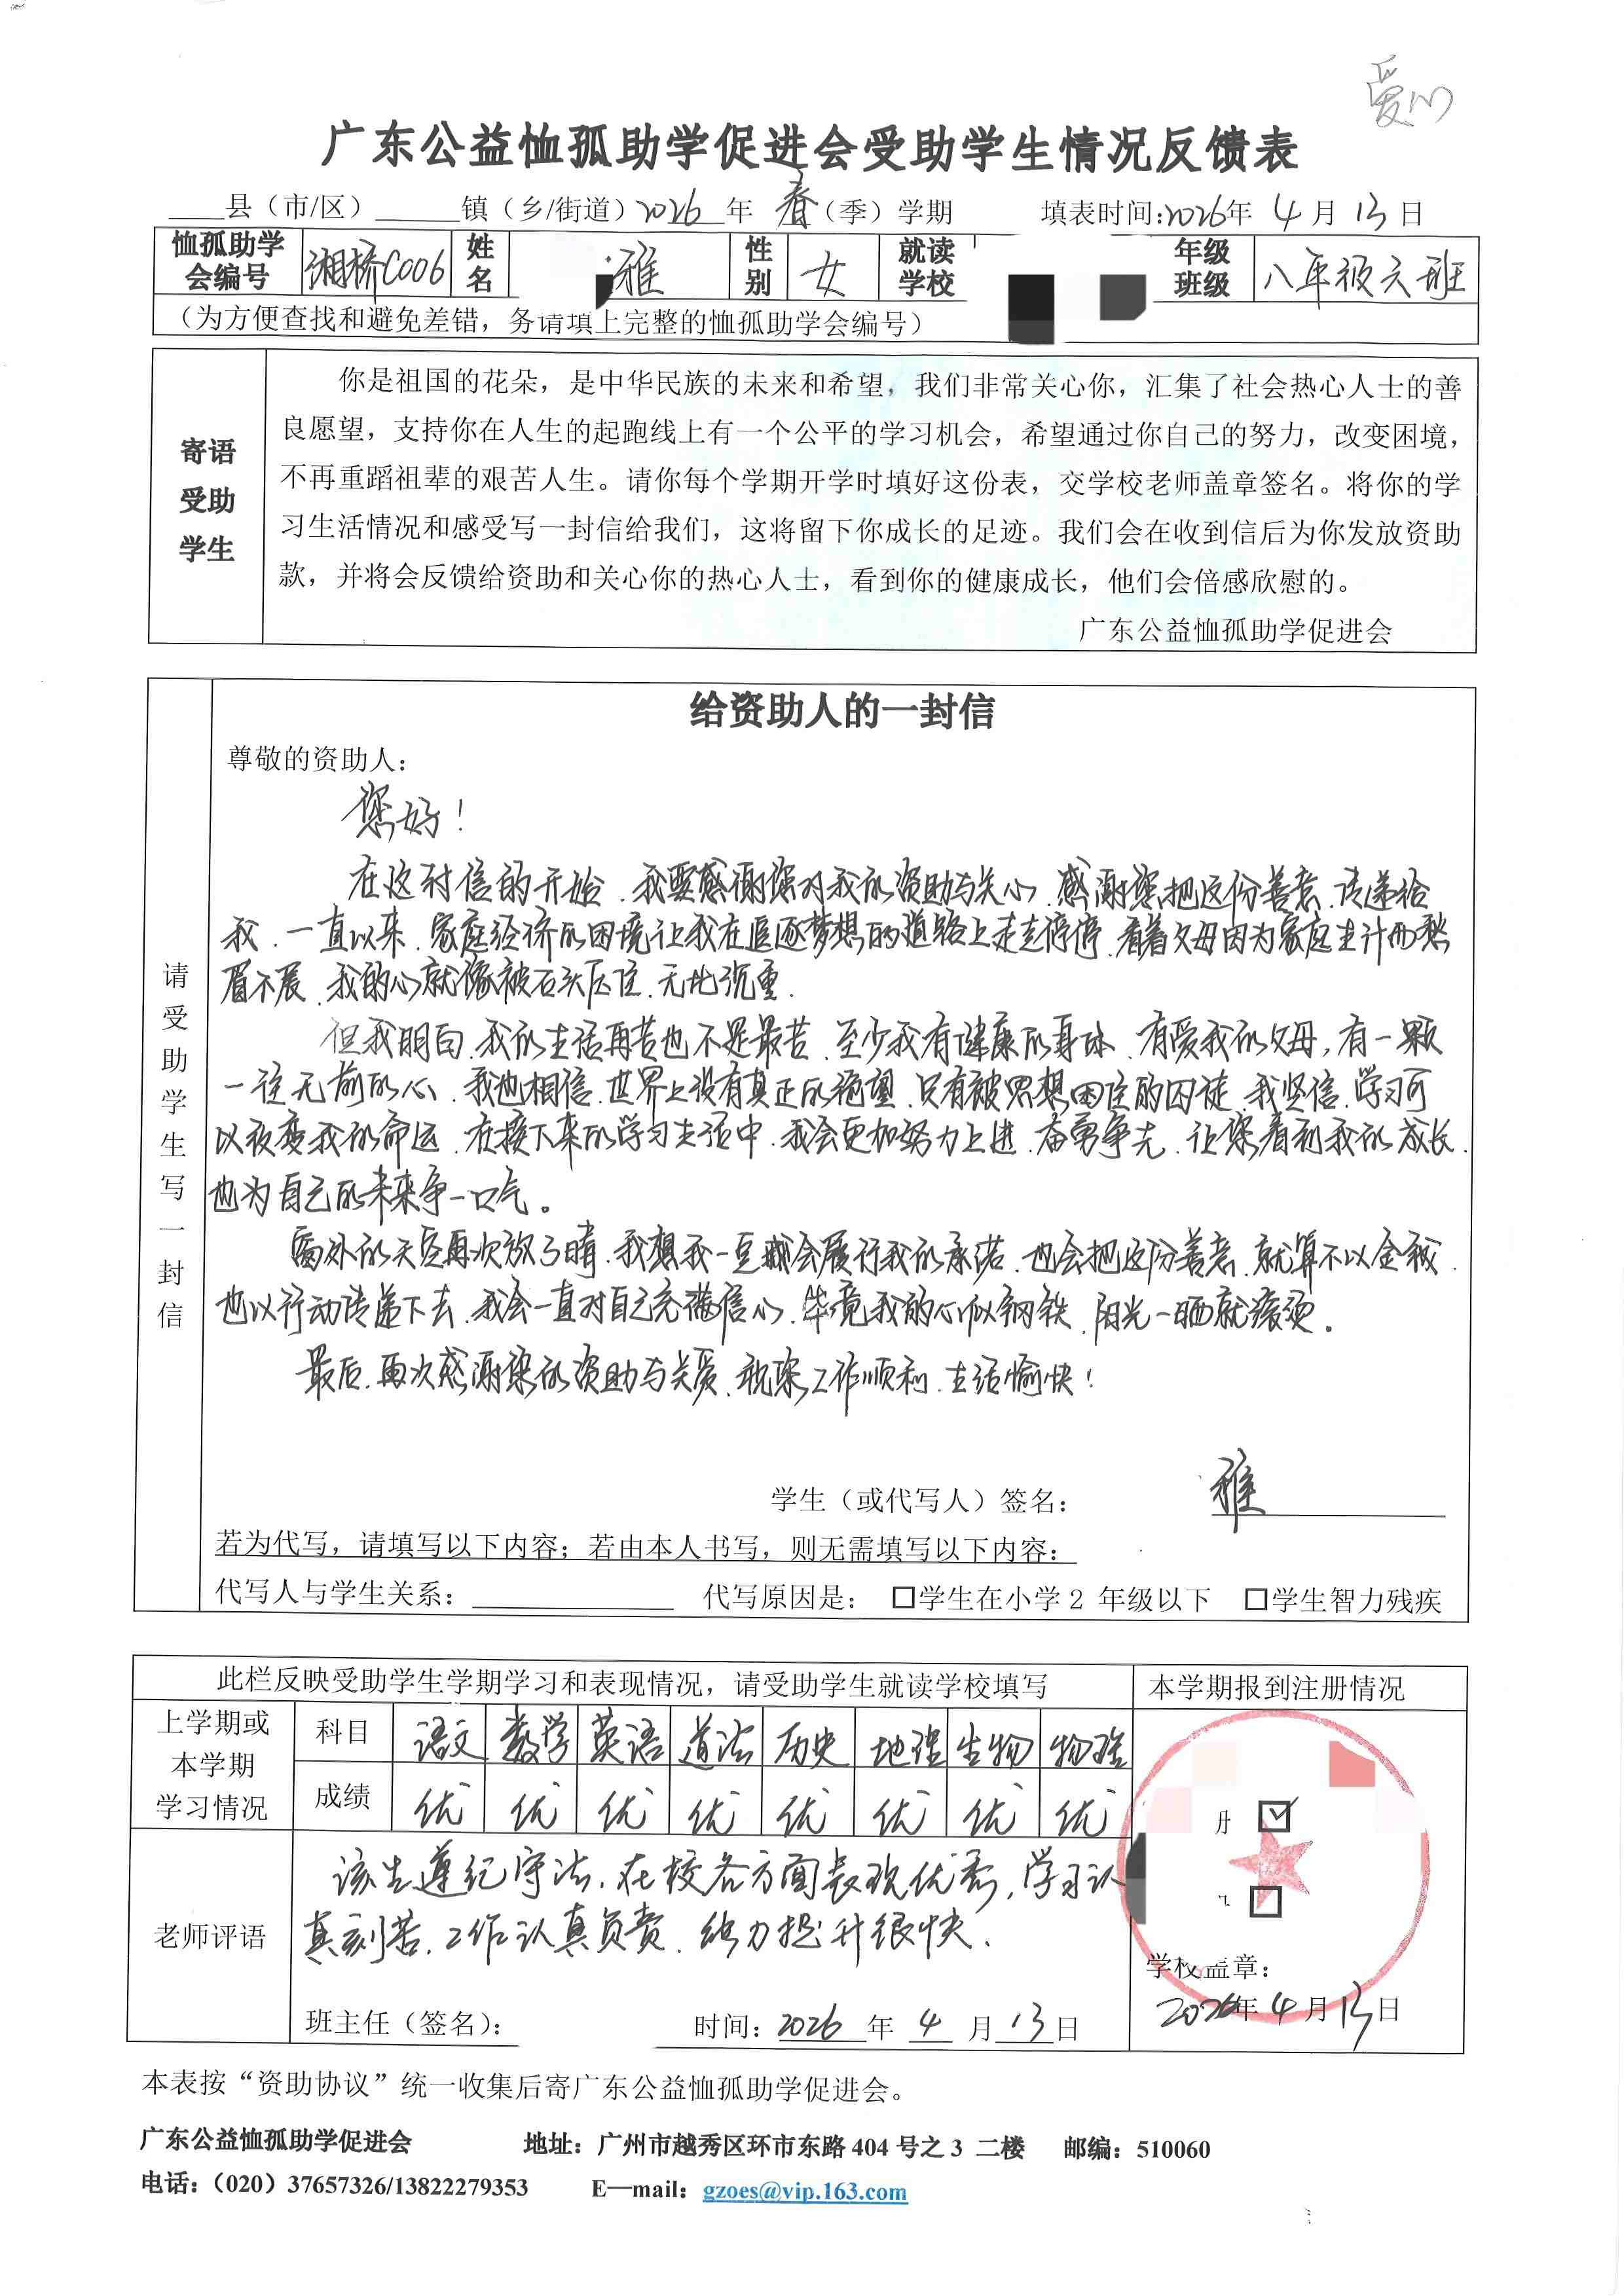 爱心
广东公益恤孤助学促进会受助学生情况反馈表
____县（市/区）______镇（乡/街道）2026年 春（季）学期 填表时间:2026年 4月 13日
恤孤助学会编号 湘桥C006 姓名 雅 性别 女 就读学校 年级班级 八年级六班
（为方便查找和避免差错，务请填上完整的恤孤助学会编号）
寄语受助学生
你是祖国的花朵，是中华民族的未来和希望，我们非常关心你，汇集了社会热心人士的善
良愿望，支持你在人生的起跑线上有一个公平的学习机会，希望通过你自己的努力，改变困境，
不再重蹈祖辈的艰苦人生。请你每个学期开学时填好这份表，交学校老师盖章签名。将你的学
习生活情况和感受写一封信给我们，这将留下你成长的足迹。我们会在收到信后为你发放资助
款，并将会反馈给资助和关心你的热心人士，看到你的健康成长，他们会倍感欣慰的。
广东公益恤孤助学促进会
请受助学生写一封信
给资助人的一封信
尊敬的资助人：
您好！
在这封信的开始，我要感谢您对我的资助与关心，感谢您把这份善意，传递给
我，一直以来，家庭经济的困境让我在追逐梦想的道路上走走停停，看着父母因为家庭生计而愁
眉不展，我的心就像被石头压住，无比沉重．
但我明白，我的生活再苦也不是最苦，至少我有健康的身体，有爱我的父母，有一颗
一往无前的心，我也相信，世界上没有真正的绝望，只有被思想困住的囚徒，我坚信，学习可
以改变我的命运，在接下来的学习生活中，我会更加努力上进，奋勇争先，让您看到我的成长，
也为自己的未来争一口气。
窗外的天空再次放了晴，我想我一定会履行我的承诺，也会把这份善意，就算不以金钱，
也以行动传递下去，我会一直对自己充满信心，毕竟我的心似钢铁，阳光一晒就滚烫。
最后，再次感谢您的资助与关爱，祝您工作顺利，生活愉快！
学生（或代写人）签名： 雅
若为代写，请填写以下内容；若由本人书写，则无需填写以下内容：
代写人与学生关系：__________ 代写原因是： □学生在小学2年级以下 □学生智力残疾
此栏反映受助学生学期学习和表现情况，请受助学生就读学校填写 本学期报到注册情况
上学期或本学期学习情况
科目 语文 数学 英语 道法 历史 地理 生物 物理
成绩 优 优 优 优 优 优 优 优
老师评语
该生遵纪守法，在校各方面表现优秀，学习认
真刻苦，工作认真负责，能力提升很快．
班主任（签名）： 时间：2026 年 4 月 13 日
☑
□
学校盖章：
2026年 4月 13日
本表按“资助协议”统一收集后寄广东公益恤孤助学促进会。
广东公益恤孤助学促进会 地址：广州市越秀区环市东路404号之3 二楼 邮编：510060
电话：（020）37657326/13822279353 E—mail：gzoes@vip.163.com